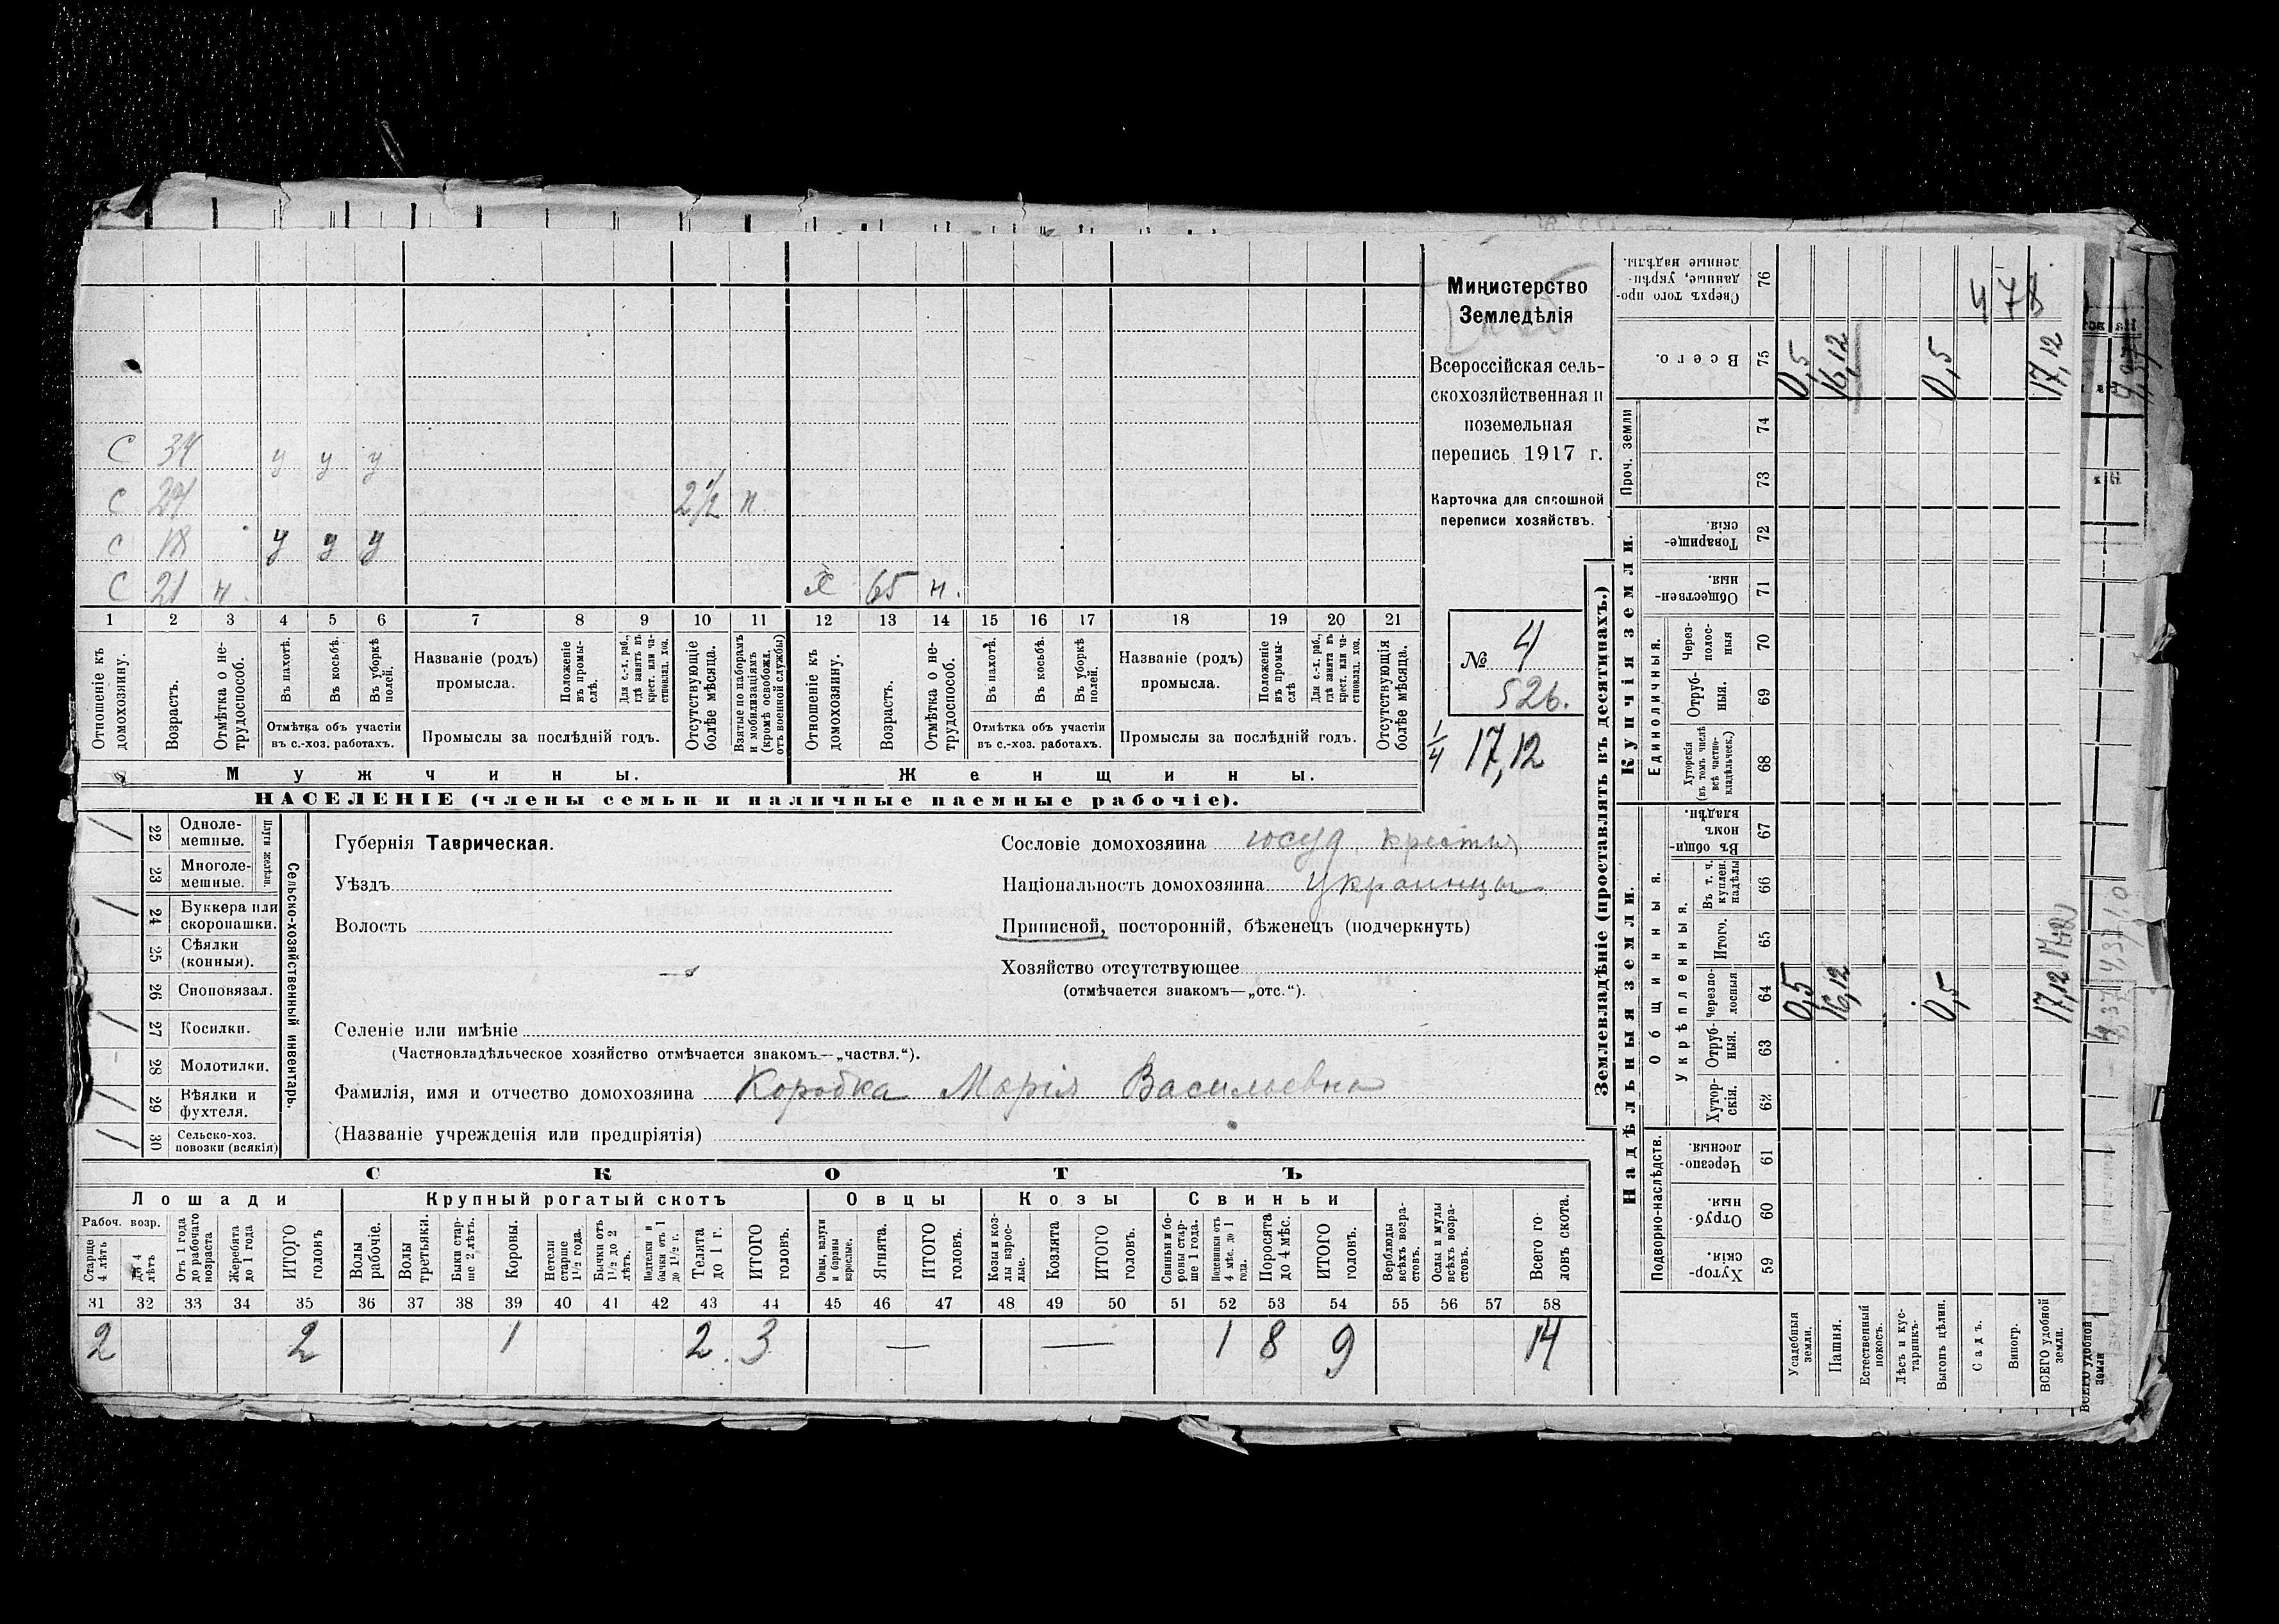 С 34 у у у
С 24 2½ п.
С 18 у у у
С 21 н. Х 65 н.
1 2 3 4 5 6 7 8 9 10 11 12 13 14 15 16 17 18 19 20 21
Отношеніе къ домохозяину.
Возрастъ.
Отмѣтка о не-трудоспособ.
Въ пахотѣ.
Въ косьбѣ.
Въ уборкѣ полей.
Отмѣтка объ участіи
въ с.-хоз. работахъ.
Названіе (родъ)
промысла.
Положеніе въ промы-слѣ.
Для с.-х. раб., гдѣ занятъ въ крест. или ча-стновлад. хоз.
Промыслы за послѣдній годъ.
Отсутствующіе болѣе мѣсяца.
Взятые по наборамъ и мобилизаціямъ (кромѣ освобожд. отъ военной службы)
Отношеніе къ домохозяину.
Возрастъ.
Отмѣтка о не-трудоспособ.
Въ пахотѣ.
Въ косьбѣ.
Въ уборкѣ полей.
Отмѣтка объ участіи
въ с.-хоз. работахъ.
Названіе (родъ)
промысла.
Положеніе въ промы-слѣ
Для с.-х. раб., гдѣ занята въ крест. или ча-стновлад. хоз.
Промыслы за послѣдній годъ.
Отсутствующія болѣе мѣсяца.
Мужчины.
Женщины.
НАСЕЛЕНІЕ (члены семьи и наличные наемные рабочіе).
Министерство
Земледѣлія
Всероссійская сель-
скохозяйственная и
поземельная
перепись 1917 г.
Карточка для сплошной
переписи хозяйствъ.
№ 4
526.
1/4 17,12
Сельско-хозяйственный инвентарь.
Плуги желѣзн.
/ 22 Одноле-мешные.
23 Многоле-мешные.
/ 24 Буккера или скоропашки.
25 Сѣялки (конныя).
26 Сноповязал.
/ 27 Косилки.
- 28 Молотилки.
/ 29 Вѣялки и фухтеля.
/ 30 Сельско-хоз. повозки (всякія)
Губернія Таврическая.
Уѣздъ
Волость
Селеніе или имѣніе
(Частновладѣльческое хозяйство отмѣчается знакомъ—„частвл.“).
Сословіе домохозяина госуд. крестья
Національность домохозяина украинцы
Приписной, посторонній, бѣженецъ (подчеркнуть)
Хозяйство отсутствующее
(отмѣчается знакомъ—„отс.“).
Фамилія, имя и отчество домохозяина Коробка Марія Васильевна
(Названіе учрежденія или предпріятія)
СКОТЪ
Лошади
Крупный рогатый скотъ
Овцы
Козы
Свиньи
Рабоч. возр.
Старше 4 лѣтъ
До 4 лѣтъ
Отъ 1 года до рабочаго возраста
Жеребята до 1 года
ИТОГО головъ
Волы рабочіе.
Волы третьяки.
Быки стар-ше 2 лѣтъ.
Коровы.
Нетели старше 1½ года.
Бычки отъ 1½ до 2 лѣтъ.
Подтелки и бычки отъ 1 до 1½ г.
Телята до 1 г.
ИТОГО головъ.
Овцы, валухи и бараны взрослые.
Ягнята.
ИТОГО головъ.
Козы и коз-лы взрос-лые.
Козлята
ИТОГО головъ.
Свиньи и бо-ровы стар-ше 1 года.
Подсвинки отъ 4 мѣс. до 1 года.
Поросята до 4 мѣс.
ИТОГО головъ.
Верблюды всѣхъ возра-стовъ.
Ослы и мулы всѣхъ возра-стовъ.
Всего го-ловъ скота.
31 32 33 34 35 36 37 38 39 40 41 42 43 44 45 46 47 48 49 50 51 52 53 54 55 56 57 58
2 2 1 2 3 — — 1 8 9 14
Землевладѣніе (проставлять въ десятинахъ.)
Надѣльныя земли.
Купчія земли.
Проч. земли
Подворно-наслѣдств.
Общинныя.
Укрѣпленныя.
Единоличныя.
Сверхъ того про-данные, укрѣп-ленные надѣлы. 76
Всего. 75
74
73
Товарище-скія. 72
Обществен-ныя. 71
Через-полос-ныя 70
Отруб-ныя. 69
Хуторскія (въ томъ числѣ всѣ частно-владѣльческ.) 68
Въ общин-номъ владѣн. 67
Въ т. ч. куплен. надѣлы 66
Итого. 65
черезпо-лосныя 64
Отруб-ныя. 63
Хутор-скія. 62
Черезпо-лосныя. 61
Отруб-ныя. 60
Хутор-скія. 59
Усадебныя земли. 0,5 0,5
Пашня. 16,12 16,12
Естественный покосъ.
Лѣсъ и кус-тарникъ.
Выгонъ цѣлин. 0,5 0,5
Садъ.
Виногр.
ВСЕГО удобной земли. 17,12 17,12
478
ВСЕГО удобной земли